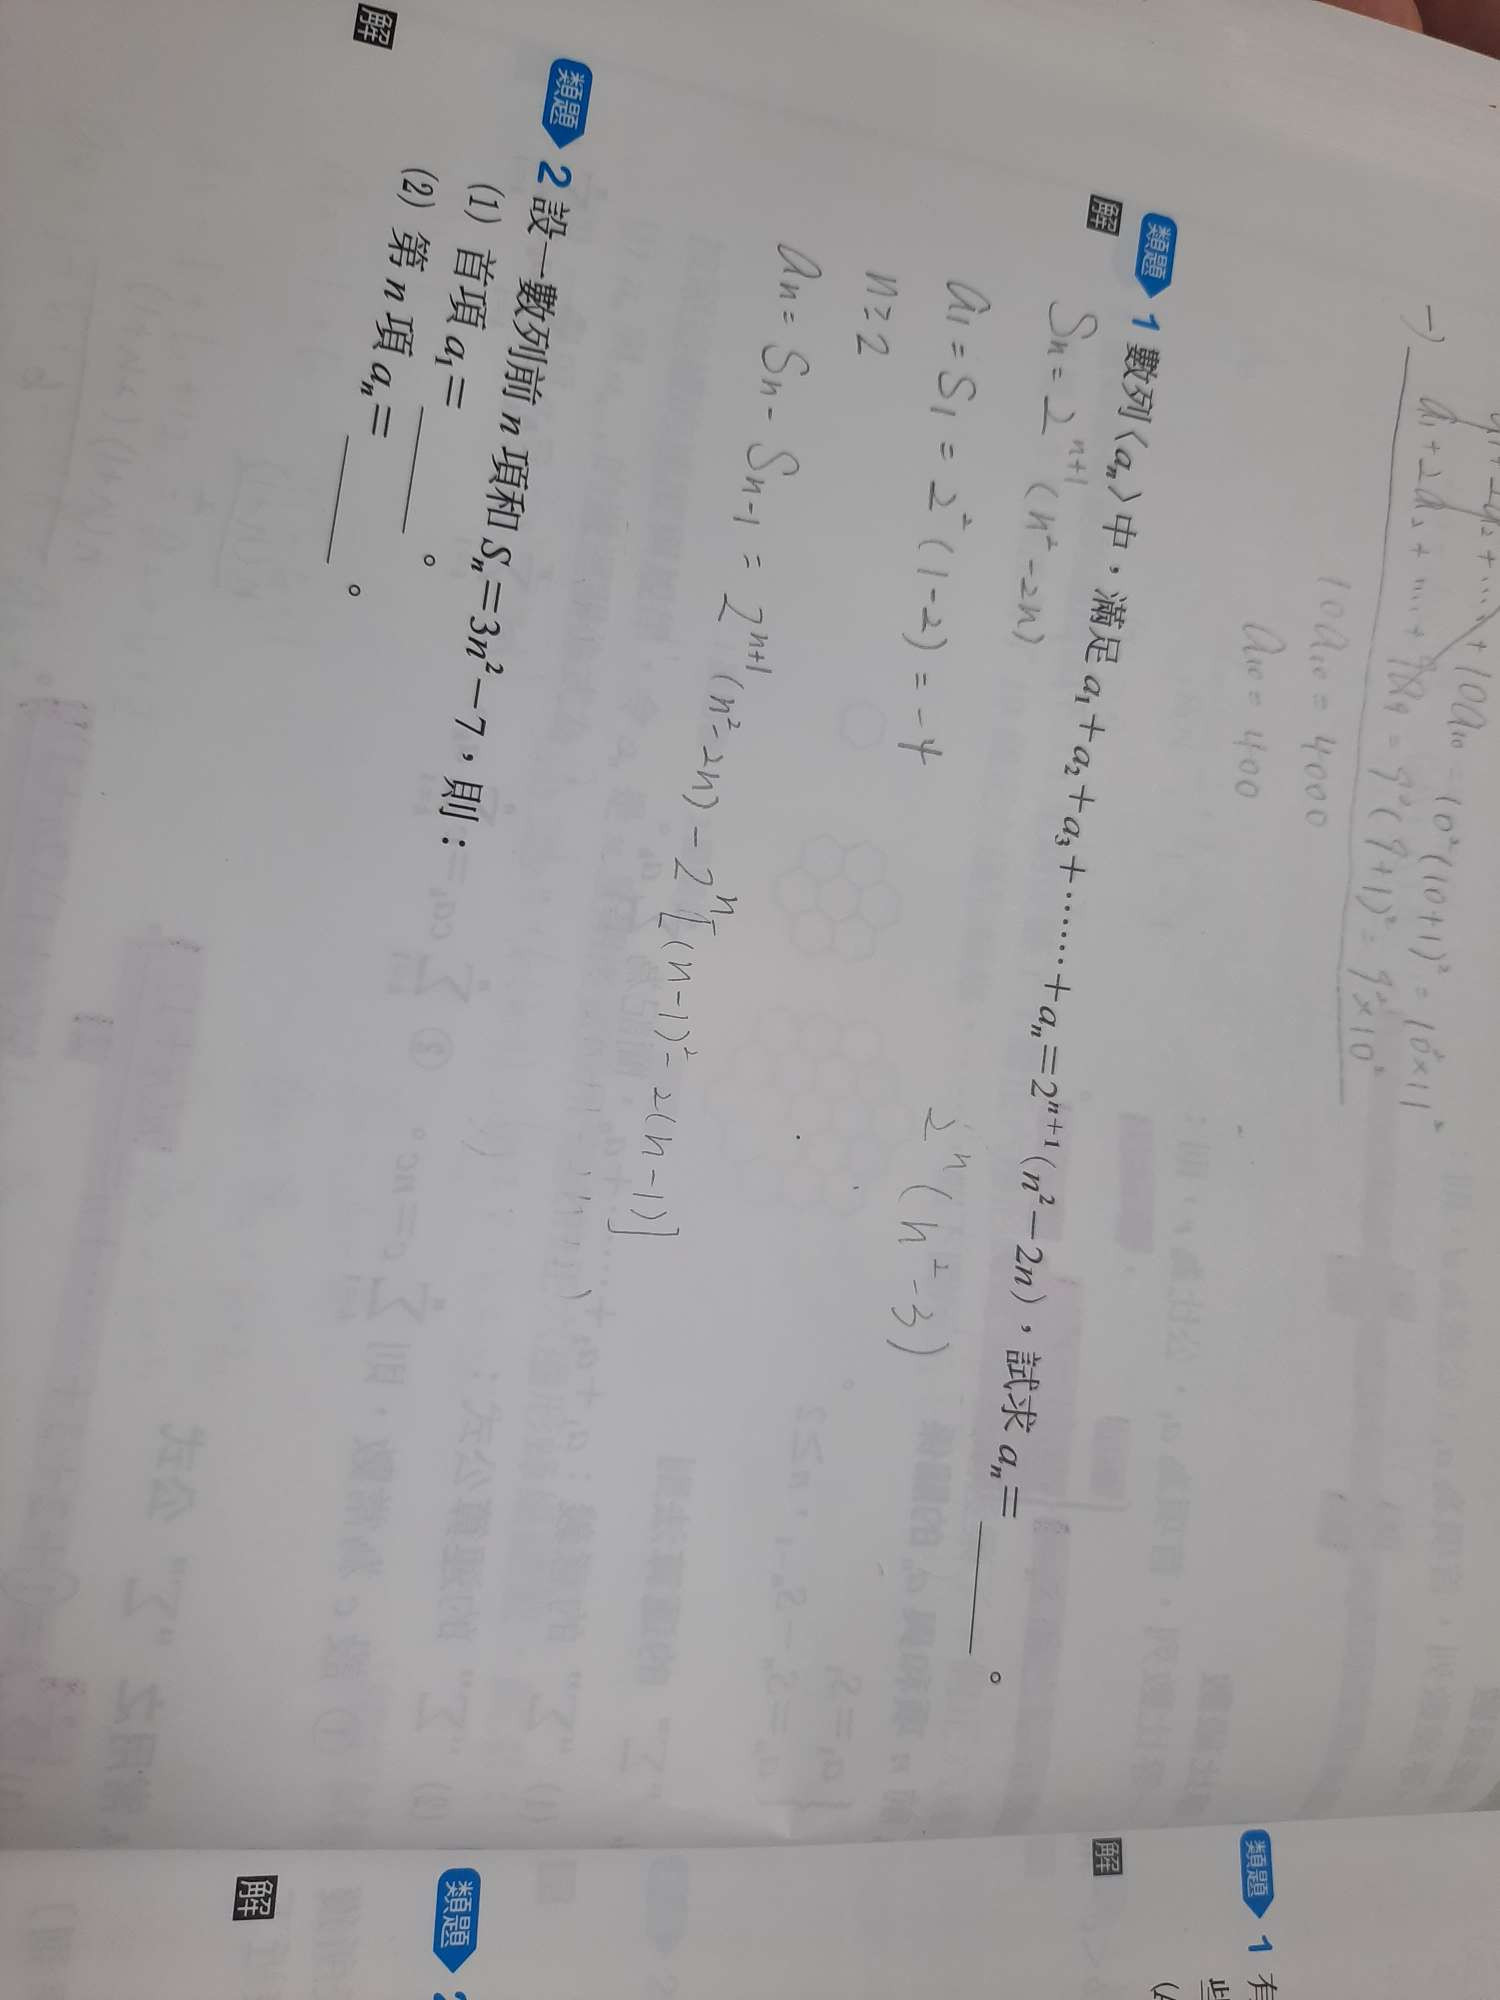 a₁+2a₂+……+10a₁₀=10²(10+1)²=10²×11²
−) a₁+2a₂+……+9a₉=9²(9+1)²=9²×10²
10a₁₀=4000
a₁₀=400
類題 1 數列〈aₙ〉中，滿足 a₁+a₂+a₃+……+aₙ=2ⁿ⁺¹(n²−2n)，試求 aₙ=______。
解
Sn=2ⁿ⁺¹(n²−2n)
a₁=S₁=2²(1−2)=−4
2ⁿ(n²−3)
n≥2
an=Sn−Sn−1=2ⁿ⁺¹(n²−2n)−2ⁿ[(n−1)²−2(n−1)]
類題 2 設一數列前 n 項和 Sₙ=3n²−7，則：
(1) 首項 a₁=______。
(2) 第 n 項 aₙ=______。
解
類題 1 有
些
解
類題
解